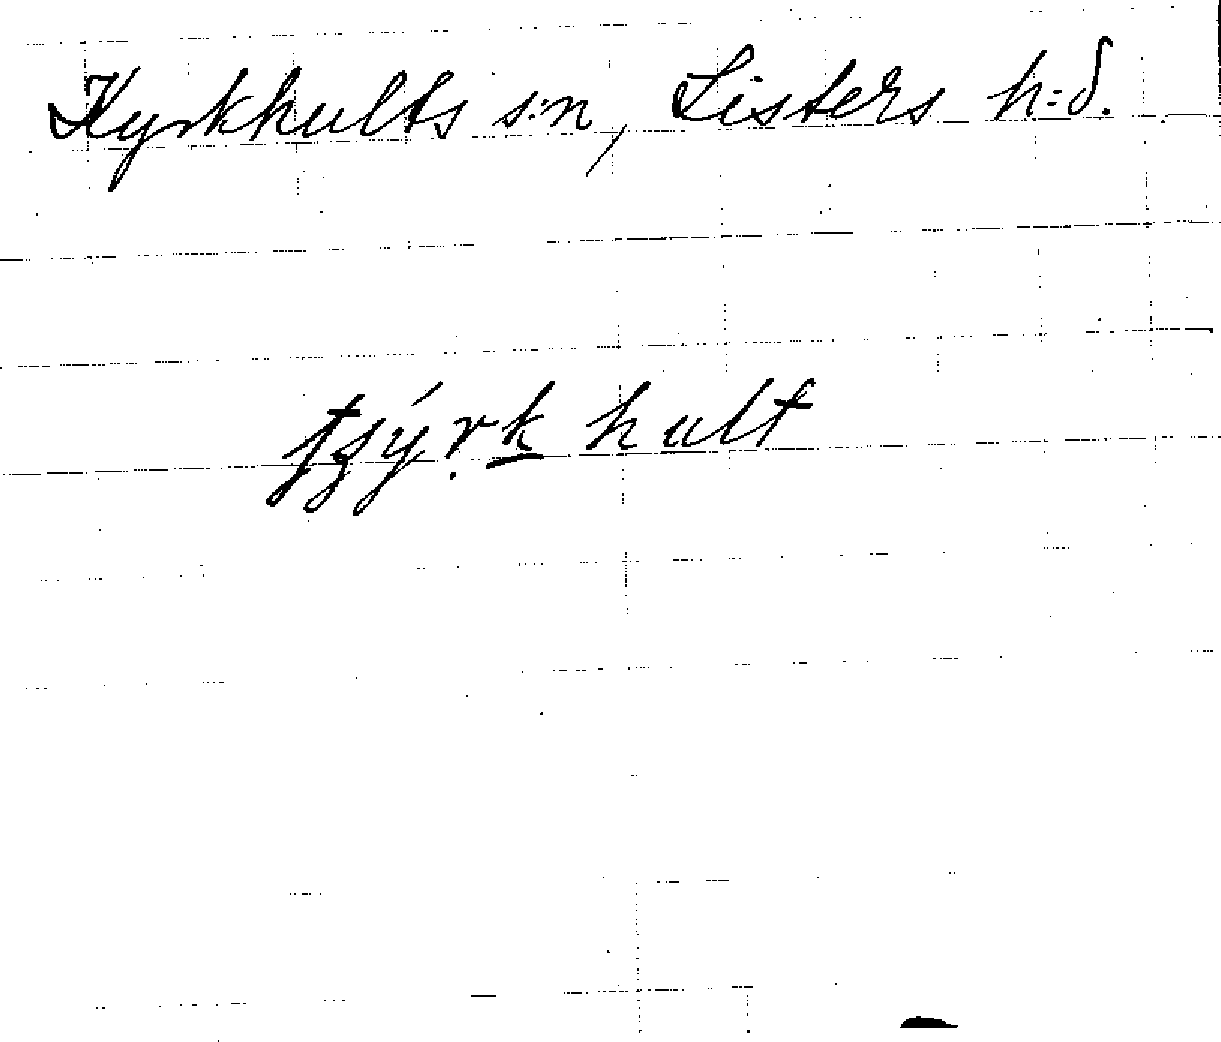 Kyrkhults s:n, Listers h:d.
tʒýṛk̲ hult